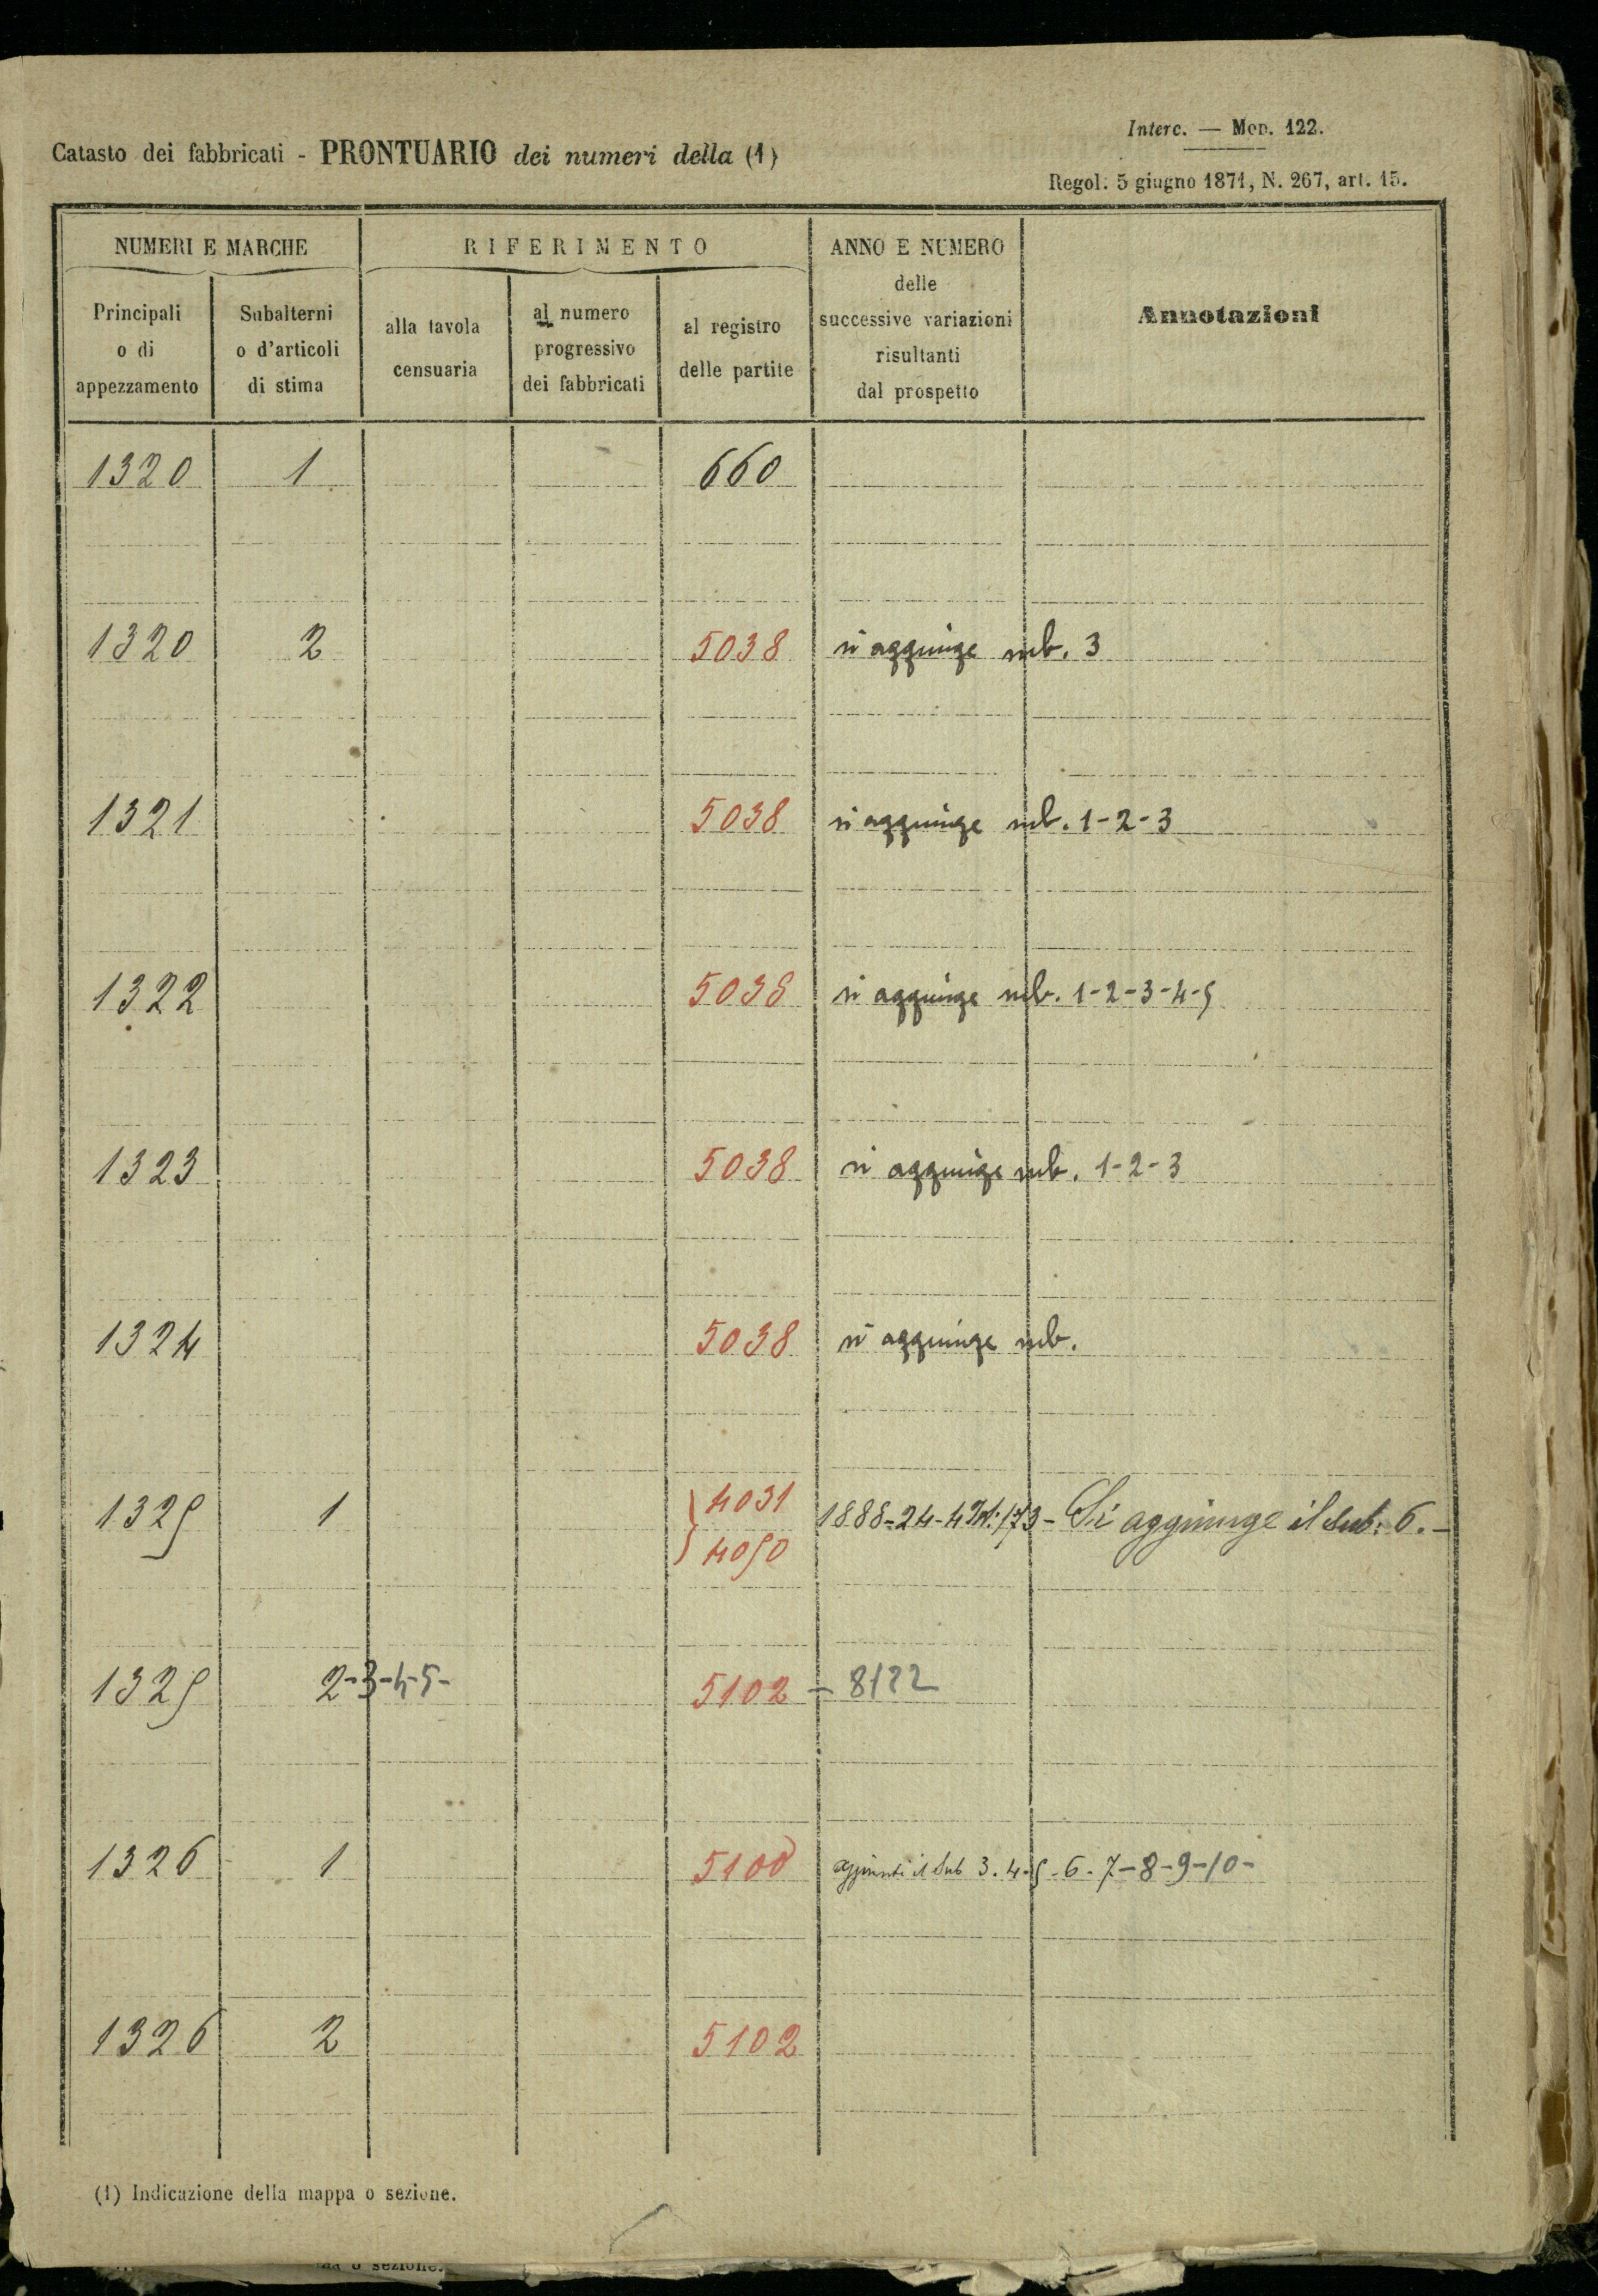 Interc. — Mod. 122.
Catasto dei fabbricati - PRONTUARIO dei numeri della (1)
Regol. 5 giugno 1871, N. 267, art. 15.
NUMERI E MARCHE
RIFERIMENTO
ANNO E NUMERO
delle
successive variazioni
risultanti
dal prospetto
Annotazioni
Principali
o di
appezzamento
Subalterni
o d'articoli
di stima
alla tavola
censuaria
al numero
progressivo
dei fabbricati
al registro
delle partite
1320 1 660
1320 2 5038 si aggiunge sub. 3
1321 5038 si aggiunge sub. 1-2-3
1322 5038 si aggiunge sub. 1-2-3-4-5
1323 5038 si aggiunge sub. 1-2-3
1324 5038 si aggiunge sub.
1325 1 4031 1888-24-4 173- Si aggiunge il sub: 6.-
4050
1325 2-3-4-5- 5102 - 8122
1326 1 5100 aggiunti il sub 3.4-5-6-7-8-9-10-
1326 2 5102
(1) Indicazione della mappa o sezione.
o sezione.